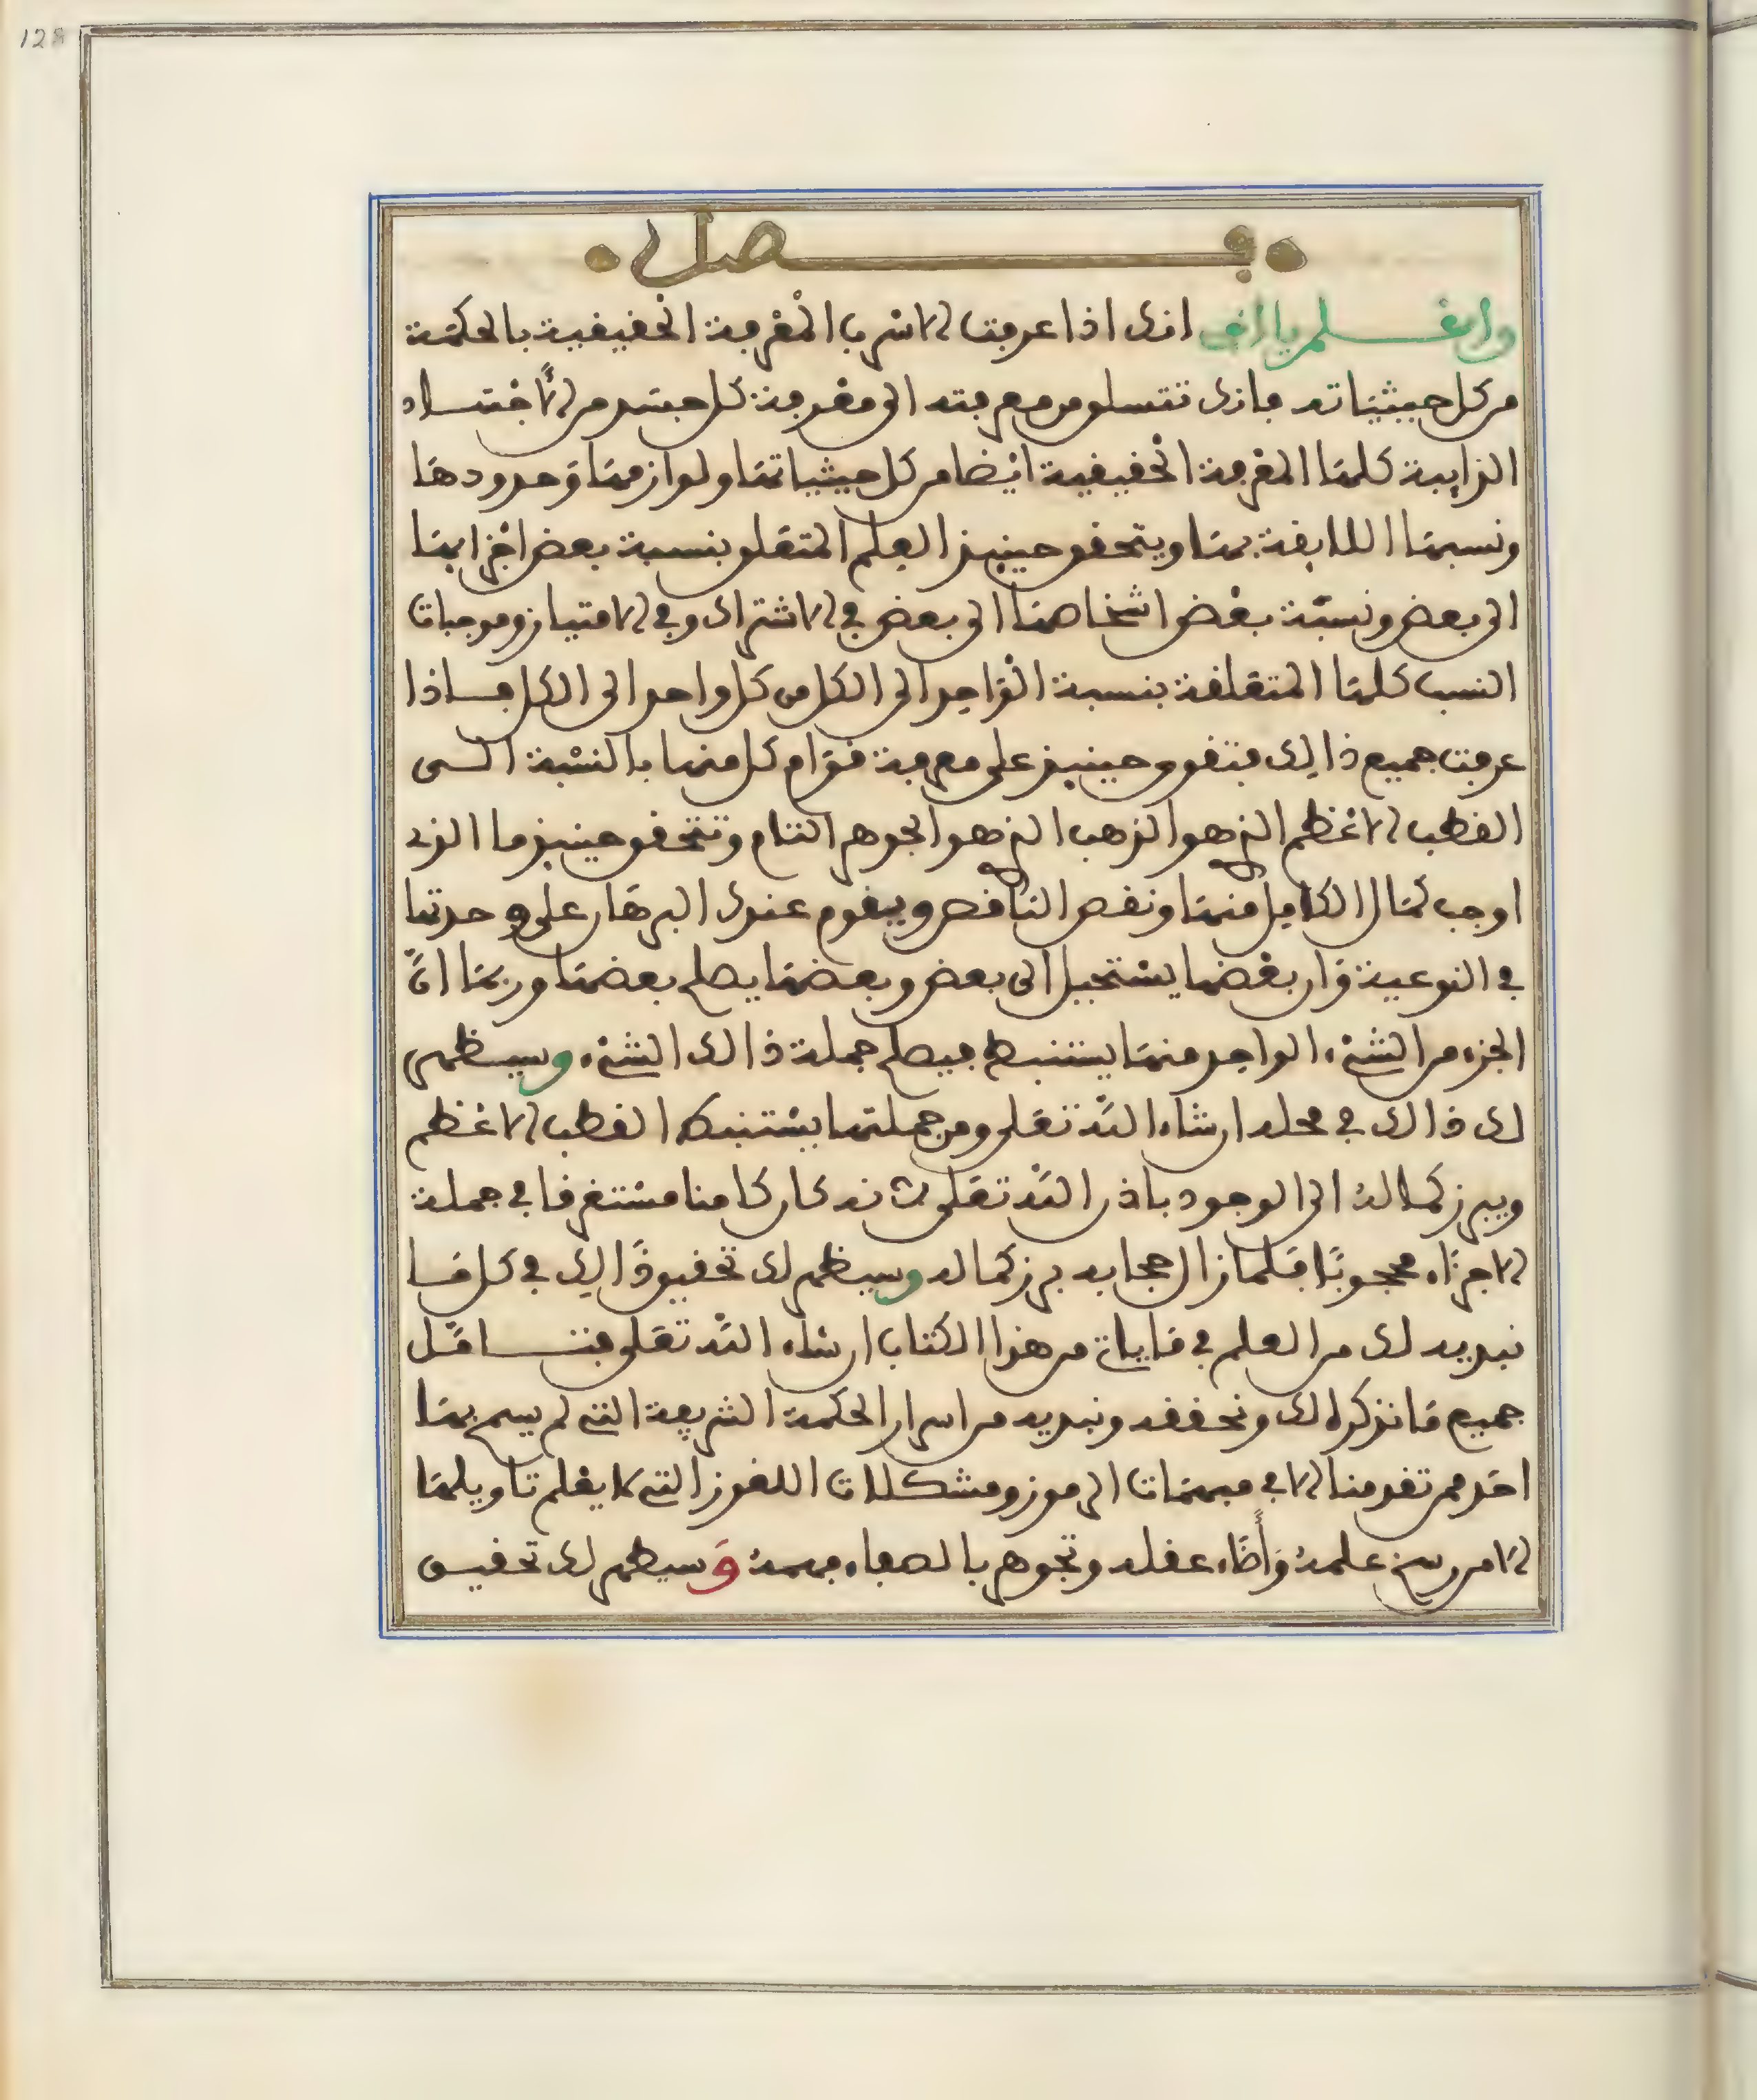 128
فصل
واعلم يا اخي انك اذا عرفت الاشرف المعرفة الحقيقية بالحكمة
من كل حيثياته فانك تتسلق من معرفته الى معرفة كل جسد من الاجساد
الذايبة كلها المعرفة الحقيقية ايضا من كل حيثياتها ولوازمها وحدودها
ونسبها اللايقة بها ويتحقق حينيذ العلم المتعلق بنسبة بعض اجزايها
الى بعض ونسبة بعض اشخاصها الى بعض في الاشتراك وفي الامتياز وموجبات
النسب كلها المتعلقة بنسبة الواحد الى الكل من كل واحد الى الكل فاذا
عرفت جميع ذالك فتقوى حينيذ على معرفة قوام كل منها بالنسبة الى
القطب الاعظم الذي هو الذهب الذي هو الجوهر التام وتتحقق حينيذ ما الذي
اوجب كمال الكامل منها ونقص الناقص ويقوم عندك البرهان على وحدتها
في النوعية وان بعضها يستحيل الى بعض وبعضها يصلح بعضها وربما ان
الجزء من الشيء الواحد منها يستنبط فيصلح جملة ذالك الشيء وسيظهر
لك ذالك في محله ان شاء الله تعلى ومن جملتها يستنبط القطب الاعظم
ويبرز كماله الى الوجود باذن الله تعلى لانه كان كامنا مستغرقا في جملة
الاجزاء محجوبا فلما زال حجابه برز كماله وسيظهر لك تحقيق ذالك في كل ما
نبديه لك من العلم في ما ياتي من هذا الكتاب ان شاء الله تعلى فتامل
جميع ما نذكره لك ونحققه ونبديه من اسرار الحكمة الشريفة التي لم يسمح بها
احد ممن تقدمنا الا في مبهمات الرموز ومشكلات اللغوز التي لا يعلم تاويلها
الا من رسخ علمه واضاء عقله وتجوهر بالصفاء فهمه وسيظهر لك تحقيق